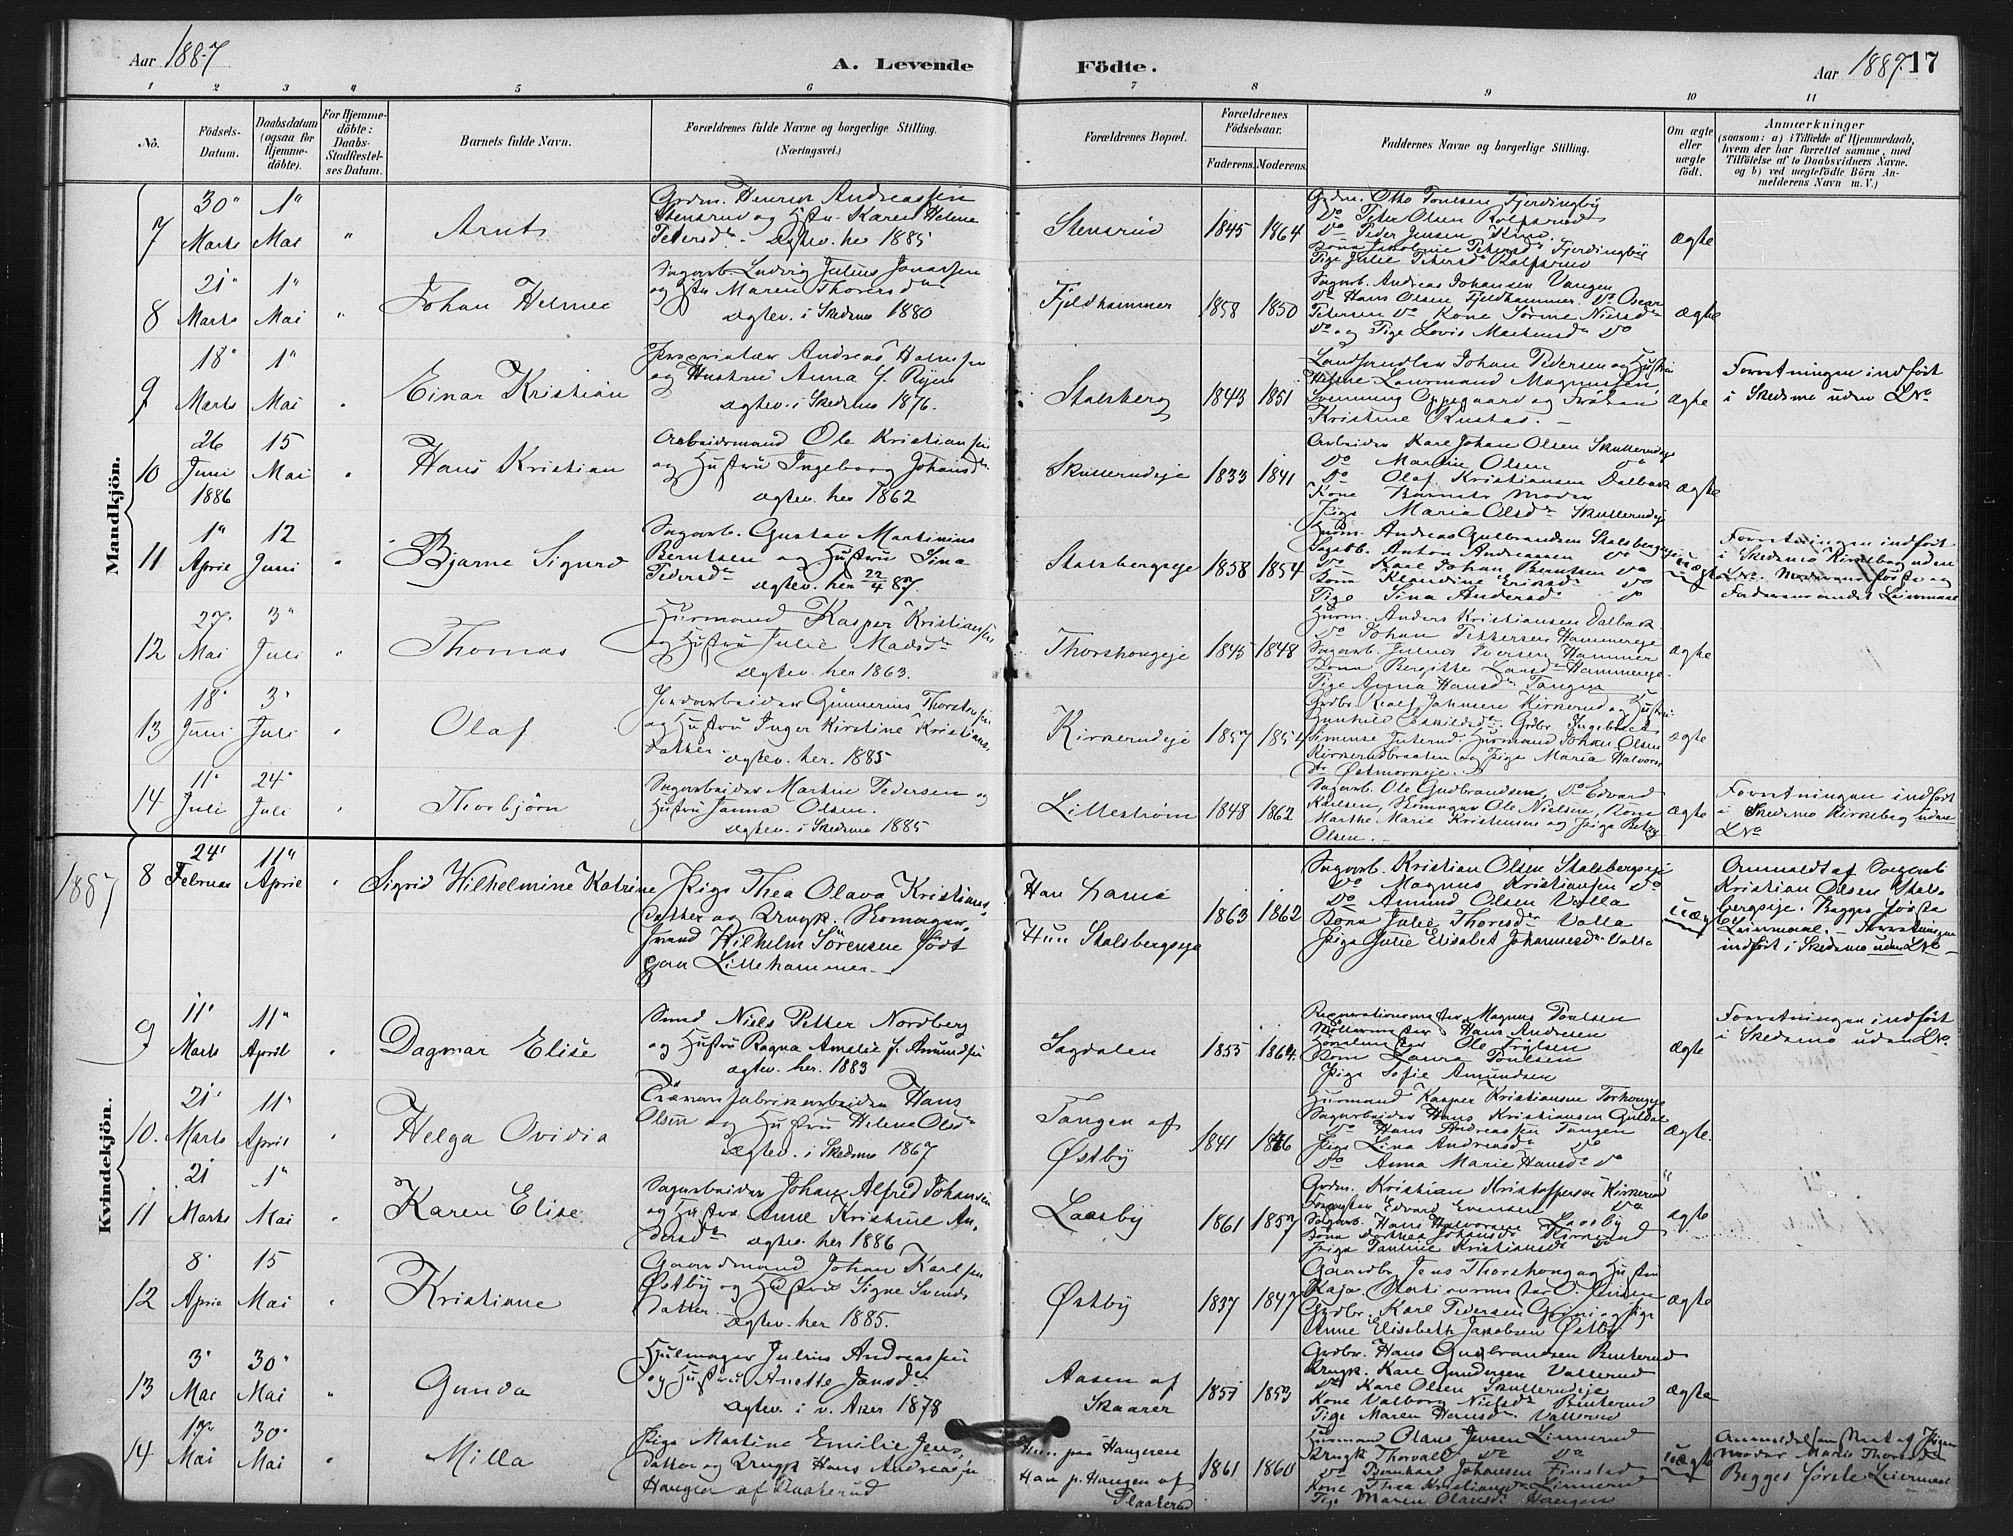 Aar 1887
A. Levende
Födte.
Aar 1887. 17
1 2 3 4 5 6 7 8 9 10 11
No.
Födsels-Datum.
Daabsdatum (ogsaa for Hjemme-döbte).
For Hjemme-döbte: Daabs-Stadfæstel-ses Datum.
Barnets fulde Navn.
Forældrenes fulde Navne og borgerlige Stilling.
(Næringsvei.)
Forældrenes Bopæl.
Forældrenes Födselsaar.
Faderens. Moderens.
Faddernes Navne og borgerlige Stilling.
Om ægte eller uægte födt.
Anmærkninger
(saasom: a) i Tilfælde af Hjemmedaab,
hvem der har forrettet samme, med
Tilföielse af to Daabsvidners Navne.
og b) ved uægtefödte Börn An-
melderens Navn m. V.)
Mandkjön.
7
30" Marts
1" Mai
"
Arnt
Grdm. Henrik Andreassen
Stensrud og Hstu. Karen Helene
Pedersd. - Ægtev. her 1885
Stensrud
1845 1864
Grdm. Otto Poulsen Fjerdingby
Do Peter Olsen
Do Peder Jensen
ægte
8
21" Marts
1" Mai
"
Johan Helmer
Sagarb. Ludvig Julius Jonassen
og Hstu Maren Thorersd.
Ægtev. i Skedsmo 1880
Fjeldhammer
1858 1850
Sagarb. Andreas Johansen Vangen
Do Hans Olsen Fjeldhammer. Do Oscar
Petersen Do Kone Sörine Nielsd.
Do og Pige Lovis Do
ægte
9
18" Marts
1" Mai
"
Einar Kristian
Proprietær Andreas Holmsen
og Hustru Anna f. Ryen
Ægtev. i Skedsmo 1876.
Stalsberg
1843 1851
Landhandler Johan Pedersen og Hustru
Helene Magnussen
Svenning Oppegaard og Fröken
Kristine
ægte
Forretningen indfört
i Skedsmo uden LNo
10
26 Juni 1886
15 Mai
"
Hans Kristian
Arbeidsmand Ole Kristiansen
og Hustru Ingeborg Johansd.
Ægtev. her 1862
Skullerudeje
1833 1841
Arbeider Karl Johan Olsen Skullerudeje
Do Martin Olsen Do
Do Olaf Kristiansen Dalbak
Kone Barnets Moder
Pige Maria Olsd. Skullerudeje
ægte
11
1" April
12 Juni
"
Bjarne Sigurd
Sagarb. Gustav Martinius
Berntsen og Hustru Sina
Pedersd. Ægtev. her 22/4 87.
Stalsbergeje
1858 1854
Husm. Andreas Gulbrandsen Stalsbergeje
Sagarb. Anton Andreassen Do
Do Karl Johan Berntsen Do
Kone Klaudine Eriksd. Do
Pige Sina Andersd. Do
uægte
Forretningen indfört
i Skedsmo Kirkebog uden
LNo. Moderens förste og
Faderens andet Leiermaal
12
27 Mai
3" Juli
"
Thomas
Husmand Kasper Kristiansen
og Hustru Julie Madsd.
Ægtev. her 1863.
Thorshougeje
1845 1848
Husm. Anders Kristiansen Dalbak
Do Johan Pettersen Hammereje
Sagarb. Julius Iversen Hammer
Kone Bergitte Larsd. Hammereje
Pige Anna Hansd. Tangen
ægte
13
18" Juni
3" Juli
"
Olaf
Jordarbeider Gunnerius Thorsten
og Hustru Inger Kirstine Kristians-
datter - Ægtev. her. 1885
Kirkerudeje
1857 1854
Kirkerud og Hustru
Gunhild Grdbr. Ingebret
Husmand Johan Olsen
Kirkerudbraaten og Pige Maria Halvors
dr.
ægte
14
11" Juli
24" Juli
"
Thorbjörn
Sagarbeider Martin Pedersen og
Hustru Janna Olsen.
Ægtev. i Skedsmo 1885
Lilleström
1848 1862
Sagarb. Ole Gudbrandsen, Do Edvard
Karlsen, Skomager Ole Nielsen, Kone
Marthe Marie Kristensen og Pige
Olsen. -
ægte
Forretningen indfört
i Skedsmo Kirkebog uden
LNo
1887
Kvindekjön.
8
24" Februar
11" April
"
Sigrid Wilhelmine Katrine
Pige Thea Olava Kristians-
datter og Ungk. Skomager-
svend Wilhelm Sörensen födt
paa Lillehammer -
Han
Hun Stalsbergeje
1863 1862
Sagarb. Kristian Olsen Stalsbergeje
Do Magnus Kristiansen Do
Do Amund Olsen Valla
Kone Julie Thorsd. Valla
Pige Julie Elisabet Johannesd. Valla
uægte
Anmeldt af Sagarb
Kristian Olsen Stals-
bergeje. Begges förste
Leiermaal. - Forretningen
indfört i Skedsmo uden LNo
9
11" Marts
11" April
"
Dagmar Elise
Smed Niels Petter Nordberg
og Hustru Ragna Amalie f. Amundsen
Ægtev. her. 1883
Sagdalen
1855 1864.
Magnus Poulsen
Möllermester Hans Andresen
Ole
Kone Laura Poulsen
Pige Sofie Amundsen
ægte
Forretningen indfört
i Skedsmo uden LNo.
10.
21" Marts
11" April
"
Helga Ovidia
Fabrikarbeider Hans
Olsen og Hustru Helene Olsd.
Ægtev. i Skedsmo 1867
Tangen af
Østby
1841 1846
Husmand Kasper Kristiansen Torshougeje
Sagarbeider Hans Kristiansen
Do Hans Andreassen Tangen
Pige Lina Andreasd. Do
Do Anna Marie Hansd. Do
ægte.
11
21 Marts
1" Mai
"
Karen Elise
Sagarbeider Johan Alfred Johansen
og Hustru Anne Kristine An-
dersd. Ægtev. her 1886
Laasby
1861 1857
Grdm. Kristian Kristoffersen Kirkerud
Edvard Evensen Do
Sagarb. Hans Halvorsen Laasby
Kone Dorthea Johansd. Kirkerud
Pige Pauline Kristiansd. Do
ægte
12
8" April
15 Mai
"
Kristiane
Gaardmand Johan Karlsen
Østby og Hustru Signe Svends
datter. Ægtev. her 1885.
Østby
1837 1847
Gaardbr. Jens Thorshoug og Hustru
Kaja
Grdbr. Karl Pedersen og Pige
Anne Elisabeth Jakobsen Østby
ægte
13
3" Mai
30" Mai
"
Gunda
Hjulmager Julius Andreassen
og Hustru Anette Jansd.
Ægtev. i v. Aker 1878
Aasen af
Skaarer
1851 1853
Grdbr. Hans Gudbrandsen
Ungk. Karl Gundersen Vallerud
Do Karl Olsen Skullerudeje
Kone Valborg Nielsd.
Pige Maren Hansd. Vallerud
ægte
14
Mai
30" Mai
"
Milla
Pige Martine Emilie Jens-
datter og Ungk. Hans Andreassen
Haugen af Flaakerud
Hun paa Haugerene
Han p. Haugen af
Flaakerud
1861 1860
Husmand Olaus Jensen Linnerud
Ungk Thorvald Do Do
Do Bernhard Johansen Finstad
Kone Thea Kristiansd. Linnerud
Pige Maren Olausd. Haugen
uægte
Moder Marie
Begges förste Leiermaal